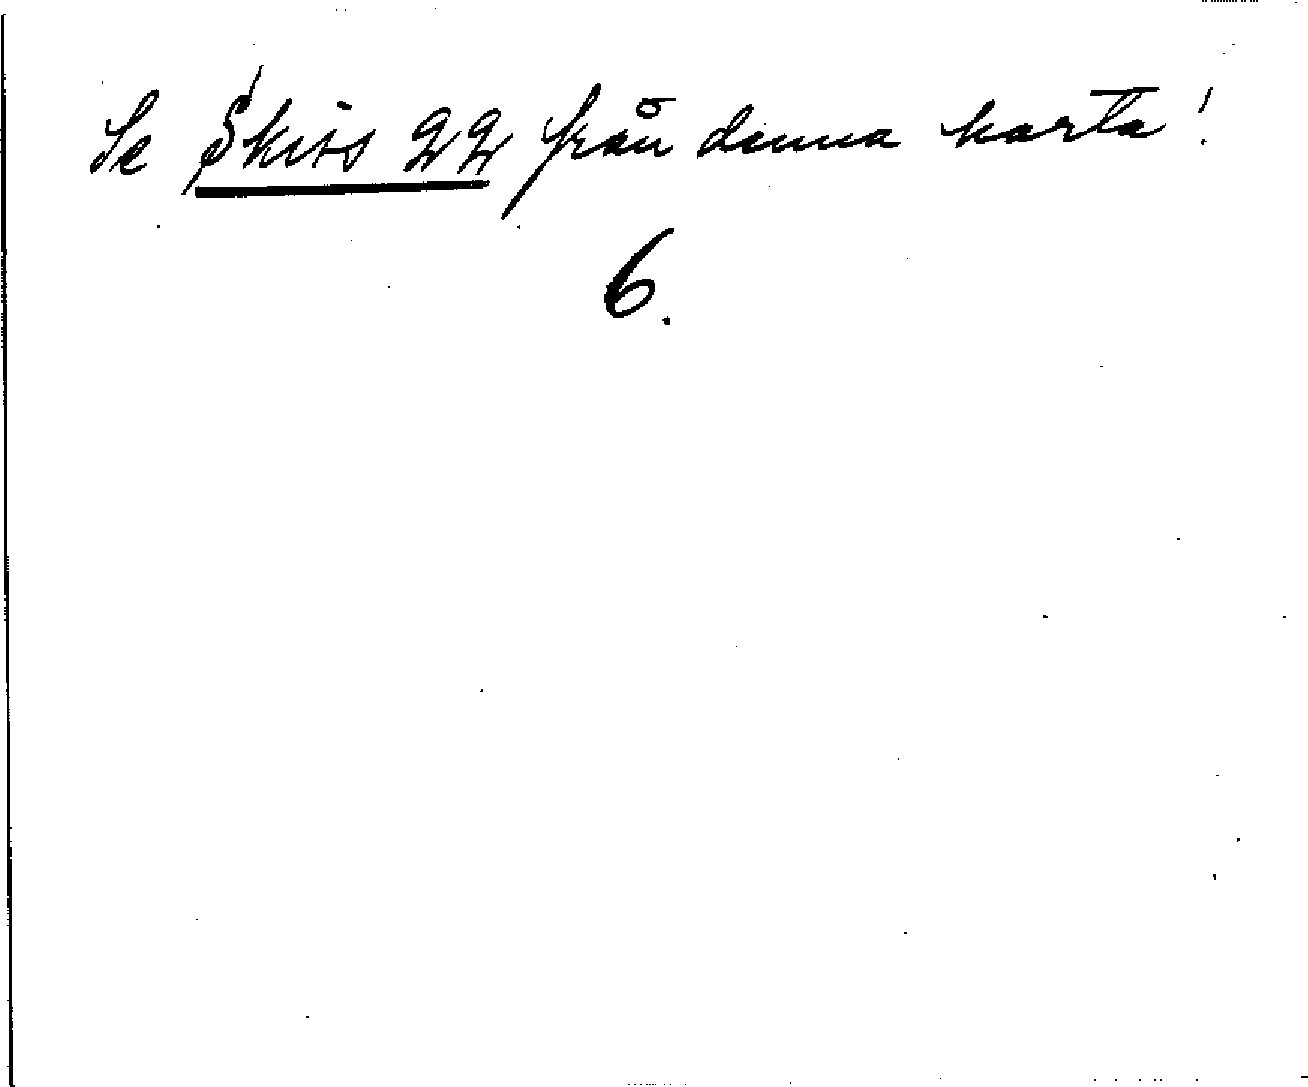 Se Skiss 22 från denna karta!
6.